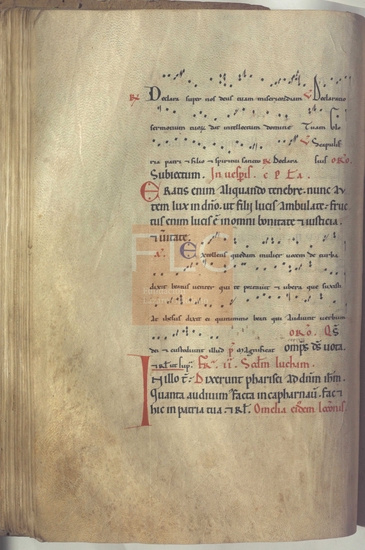 R Declara super nos deus tuam misericordiam V Declaratio
sermonum tuor dat intellectum domine Tuam Glo
V Scapulis
ria patri ⁊ filio ⁊ spiritui sancto R Declara suis ORO.
Subiectum. In uespis. c P L a.
Eratis enim aliquando tenebre. nunc au
tem lux in dño. ut filij lucis ambulate. fruc
tus enim lucis ē in omni bonitate ⁊ iusticia.
⁊ ūitate.
a. Extollens quedam mulier uocem de turba
dixit beatus uenter qui te portauit ⁊ ubera que suxisti
At ihesus dixit ei quinimmo beati qui audiunt uerbum
ORO. Qs
dei ⁊ custodiunt illud p magnificat omps ds uota.
Fr. ii. Scdm lucham.
In illo t. Dixerunt pharisei ad dūm ihm.
Quanta audiuim facta in capharnaū. fac ⁊
hic in patria tua ⁊ rl. Omelia eisdem lcconis.
FLC